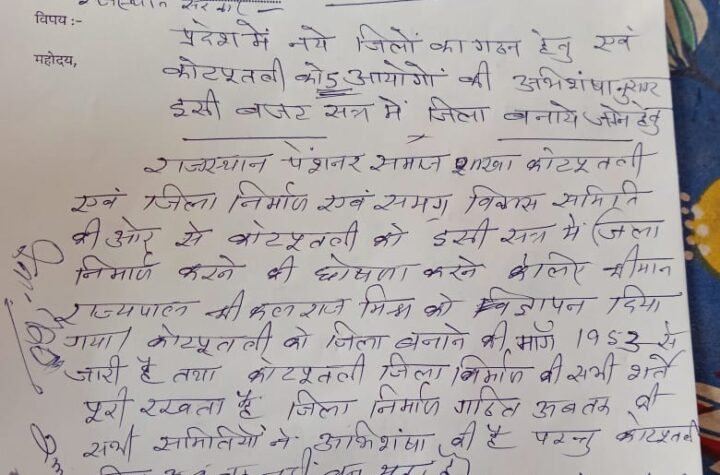 राजस्थान सरकार
विषय :-
प्रदेश में नये जिलों का गठन हेतु एवं
महोदय,
कोटपूतली को 5 आयोगों की अभिशंषानुसार
इसी बजट सत्र में जिला बनाये जाने हेतु
राजस्थान पेंशनर समाज शाखा कोटपूतली
एवं जिला निर्माण एवं समग्र विकास समिति
की ओर से कोटपूतली को इसी सत्र में जिला
निर्माण करने की घोषणा करने के लिए श्रीमान
राज्यपाल श्री कलराज मिश्र को विज्ञापन दिया
गया। कोटपूतली को जिला बनाने की माँग 1953 से
जारी है तथा कोटपूतली जिला निर्माण की सभी शर्ते
पूरी रखता है जिला निर्माण गठित अबतक की
सभी समितियों ने अभिशंषा की है परन्तु कोटपूतली